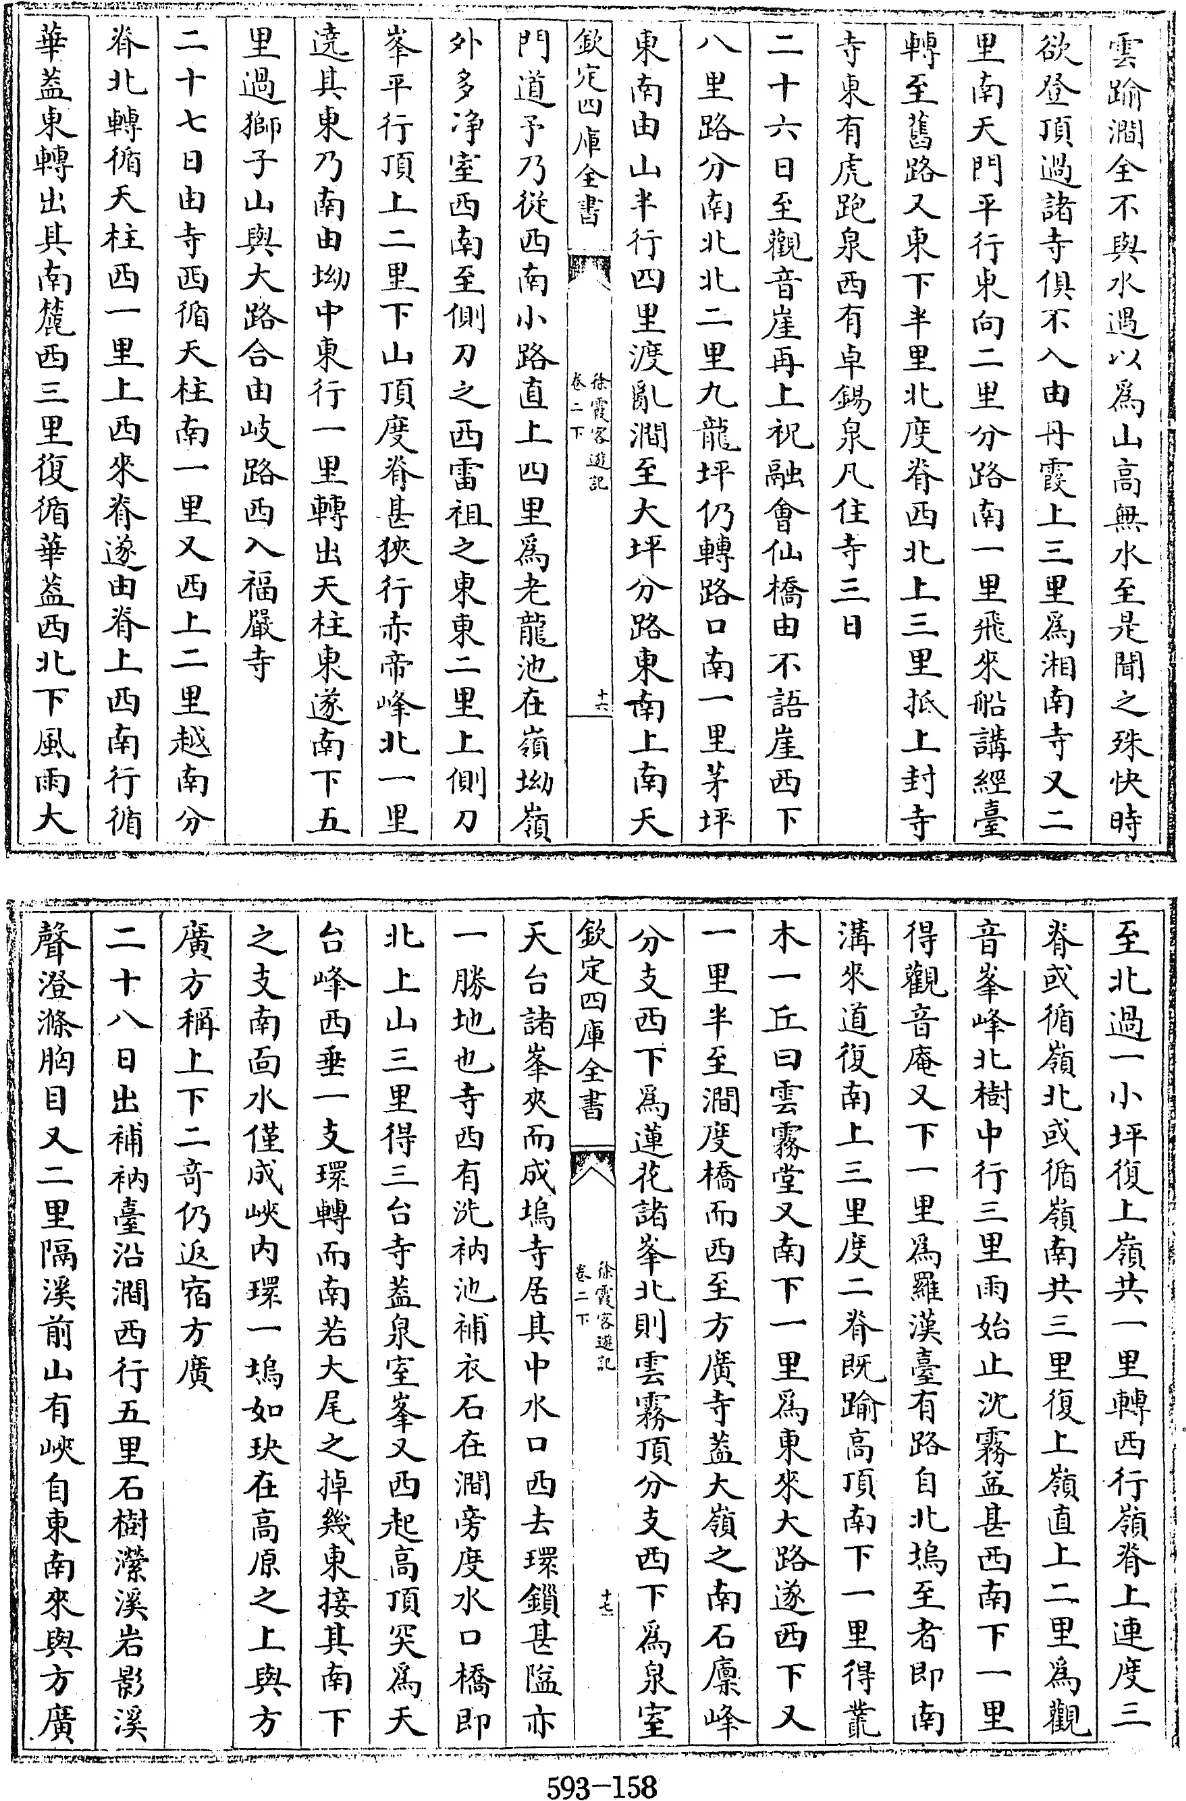 雲踰澗全不與水遇以爲山高無水至是聞之殊快時
欲登頂過諸寺俱不入由丹霞上三里爲湘南寺又二
里南天門平行東向二里分路南一里飛來船講經臺
轉至舊路又東下半里北度脊西北上三里抵上封寺
寺東有虎跑泉西有卓錫泉凡住寺三日
二十六日至觀音崖再上祝融會仙橋由不語崖西下
八里路分南北北二里九龍坪仍轉路口南一里茅坪
東南由山半行四里渡亂澗至大坪分路東南上南天
欽定四庫全書
徐霞客遊記
卷二下
十六
門道予乃從西南小路直上四里爲老龍池在嶺坳嶺
外多净室西南至側刀之西雷祖之東東二里上側刀
峯平行頂上二里下山頂度脊甚狹行赤帝峰北一里
遶其東乃南由坳中東行一里轉出天柱東遂南下五
里過獅子山與大路合由岐路西入福嚴寺
二十七日由寺西循天柱南一里又西上二里越南分
脊北轉循天柱西一里上西來脊遂由脊上西南行循
華蓋東轉出其南麓西三里復循華蓋西北下風雨大
至北過一小坪復上嶺共一里轉西行嶺脊上連度三
脊或循嶺北或循嶺南共三里復上嶺直上二里爲觀
音峯峰北樹中行三里雨始止沈霧益甚西南下一里
得觀音庵又下一里爲羅漢臺有路自北塢至者即南
溝來道復南上三里度二脊既踰高頂南下一里得叢
木一丘曰雲霧堂又南下一里爲東來大路遂西下又
一里半至澗度橋而西至方廣寺蓋大嶺之南石廪峰
分支西下爲蓮花諸峯北則雲霧頂分支西下爲泉室
欽定四庫全書
徐霞客遊記
卷二下
十七
天台諸峯夾而成塢寺居其中水口西去環鎖甚隘亦
一勝地也寺西有洗衲池補衣石在澗旁度水口橋即
北上山三里得三台寺蓋泉室峯又西起高頂突爲天
台峰西垂一支環轉而南若大尾之掉幾東接其南下
之支南面水僅成峽内環一塢如玦在高原之上與方
廣方稱上下二奇仍返宿方廣
二十八日出補衲臺沿澗西行五里石樹瀠溪岩影溪
聲澄滌胸目又二里隔溪前山有峽自東南來與方廣
593-158